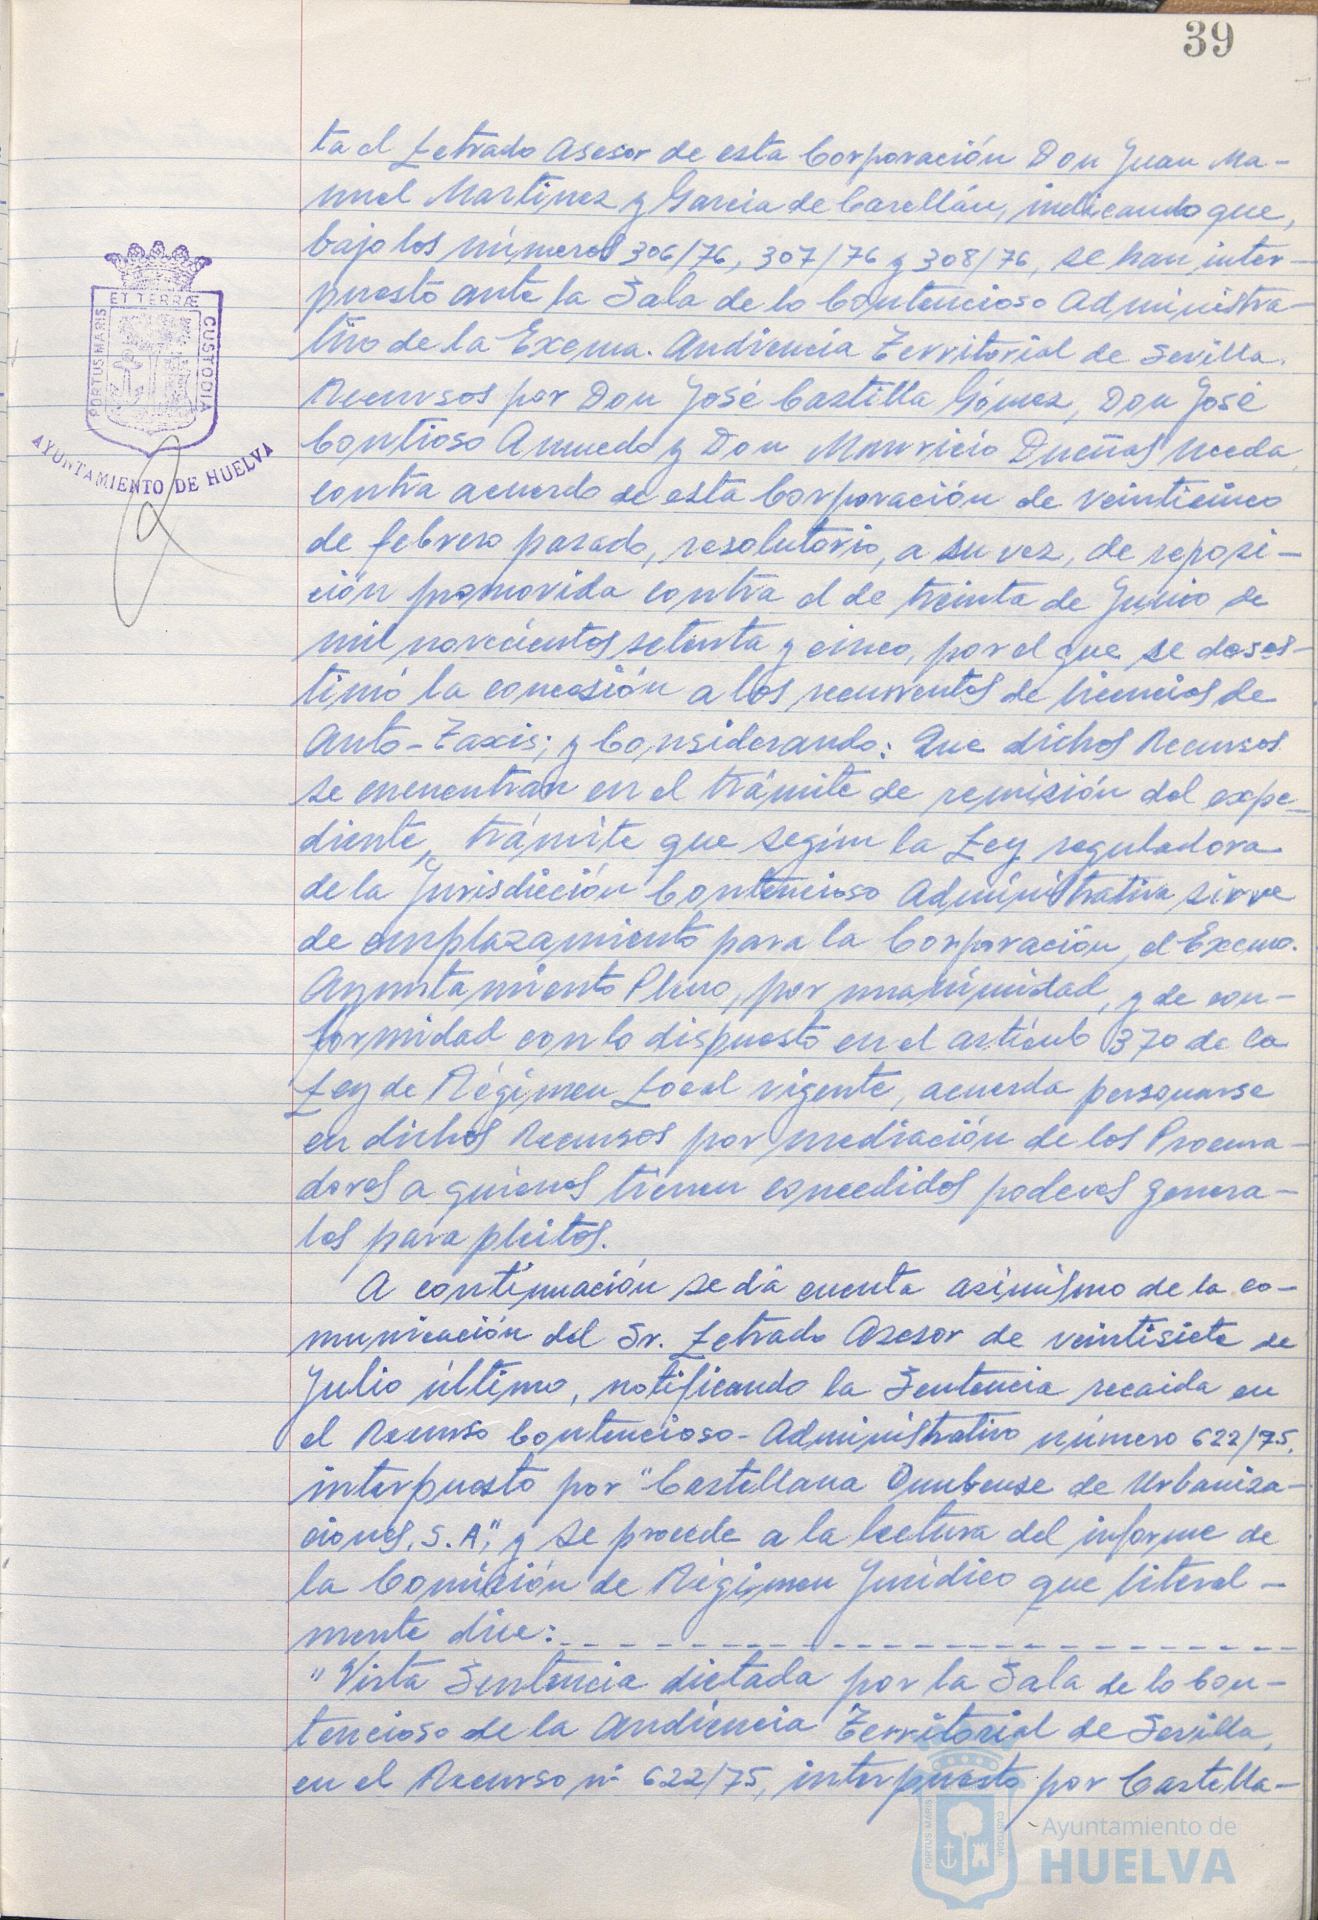 39
ta el Letrado Asesor de esta Corporación Don Juan Ma-
nuel Martinez y Garcia de Carellán, indicando que,
bajo los números 306/76, 307/76 y 308/76, se han inter-
puesto ante la Sala de lo Contencioso Administra-
tivo de la Excma. Audiencia Territorial de Sevilla.
Recursos por Don José Castilla Gómez, Don José
Contioso Amuedo y Don Mauricio Dueñas Uceda,
contra acuerdo de esta Corporación de veinticinco
de febrero pasado, resolutorio, a su vez, de reposi-
ción promovida contra el de treinta de Junio de
mil novecientos setenta y cinco, por el que se deses-
timó la concesión a los recurrentes de licencias de
Auto-Taxis; y Considerando: Que dichos Recursos
se encuentran en el trámite de remisión del expe-
diente, trámite que según la Ley reguladora
de la Jurisdicción Contencioso Administrativa sirve
de emplazamiento para la Corporación, el Excmo.
Ayuntamiento Pleno, por unanimidad, y de con-
formidad con lo dispuesto en el artículo 370 de la
Ley de Régimen Local vigente, acuerda personarse
en dichos Recursos por mediación de los Procura-
dores a quienes tienen concedidos poderes genera-
les para pleitos.
A continuación se dá cuenta asimismo de la co-
municación del Sr. Letrado Asesor de veintisiete de
Julio último, notificando la Sentencia recaida en
el Recurso Contencioso-Administrativo número 622/75,
interpuesto por "Castellana Onubense de Urbaniza-
ciones, S.A", y se procede a la lectura del informe de
la Comisión de Régimen Jurídico que literal-
mente dice:
"Vista Sentencia dictada por la Sala de lo Con-
tencioso de la Audiencia Territorial de Sevilla,
en el Recurso nº 622/75, interpuesto por Castella-
PORTUS MARIS
ET TERRÆ
CUSTODIA
AYUNTAMIENTO DE HUELVA
PORTUS MARIS
CUSTODIA
Ayuntamiento de
HUELVA